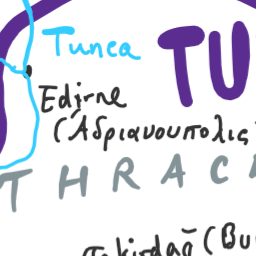 Tunca
TU
Edirne
(Αδριανουπολις
THRAC
Tekirdağ (Bu